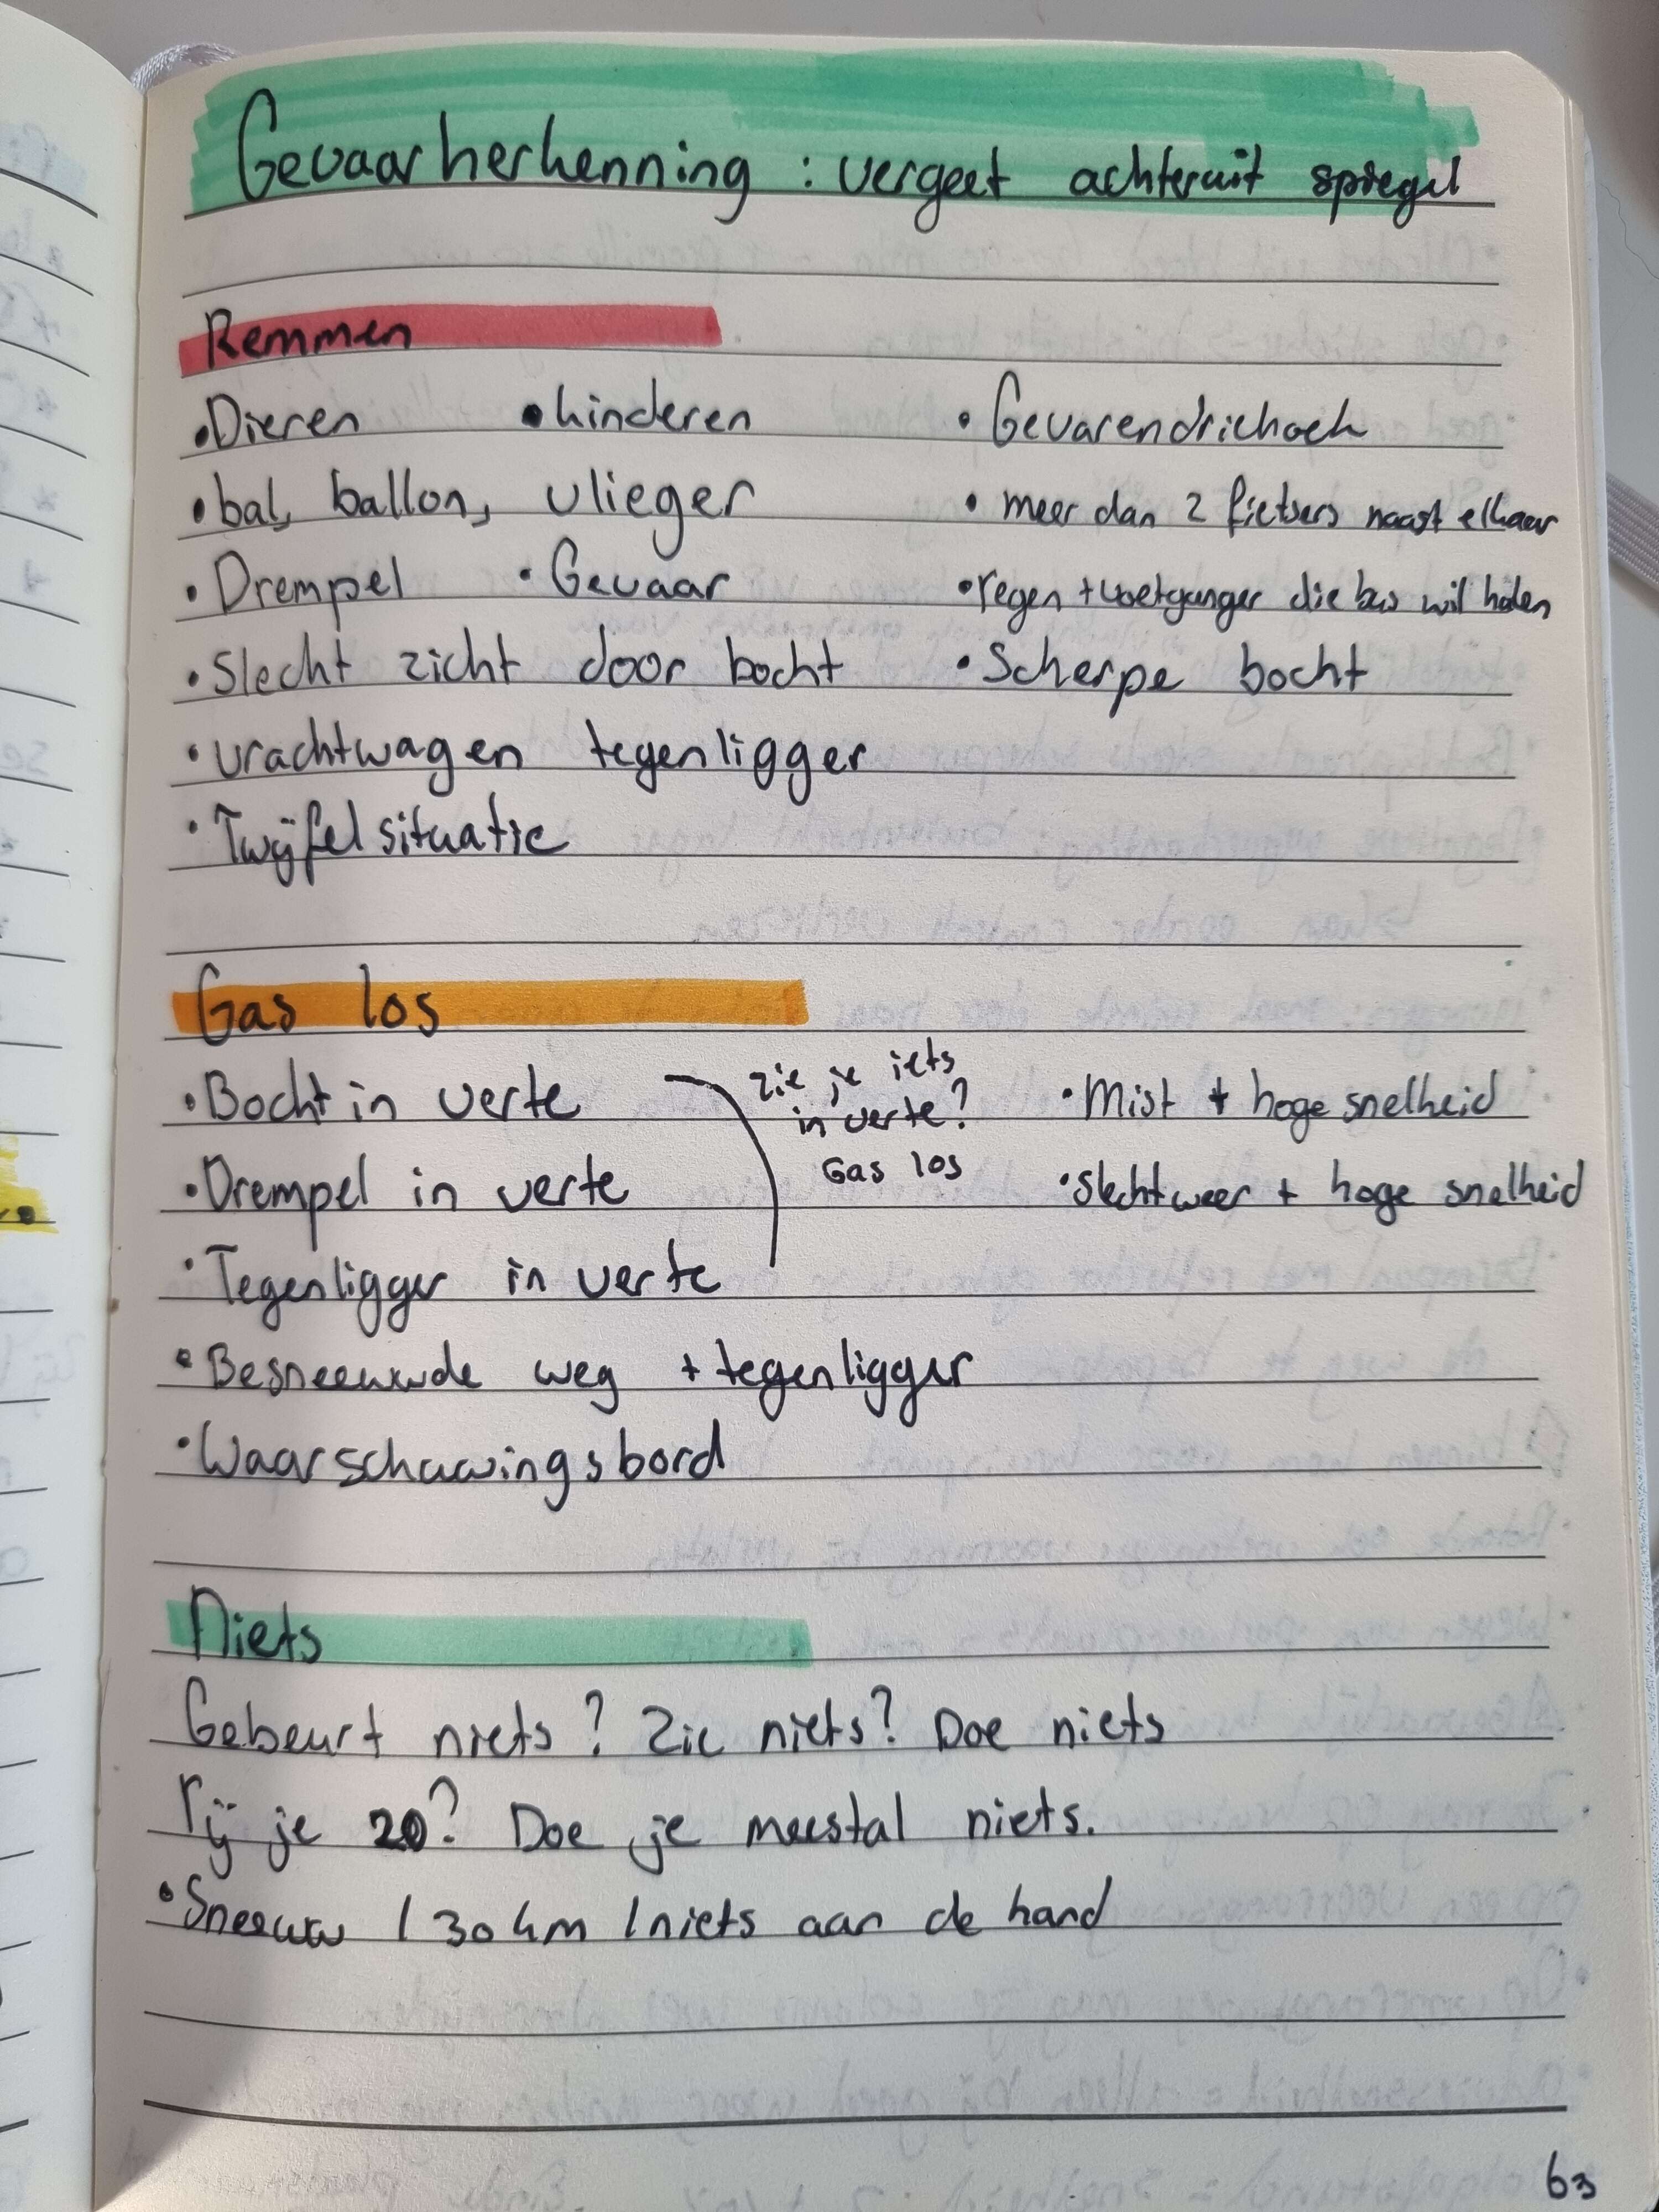 Gevaarherkenning : vergeet achteruit spiegel
Remmen
• Dieren • kinderen • Gevarendriehoek
• bal, ballon, vlieger • meer dan 2 fietsers naast elkaar
• Drempel • Gevaar • regen + voetganger die bus wil halen
• Slecht zicht door bocht • Scherpe bocht
• vrachtwagen tegenligger
• Twijfel situatie
Gas los
• Bocht in verte
• Drempel in verte
• Tegenligger in verte
zie je iets
in verte?
Gas los
• Mist + hoge snelheid
• Slecht weer + hoge snelheid
• Besneeuwde weg + tegenligger
• Waarschuwingsbord
Niets
Gebeurt niets? Zie niets? Doe niets
rij je 20? Doe je meestal niets.
• Sneeuw / 30 km / niets aan de hand
63